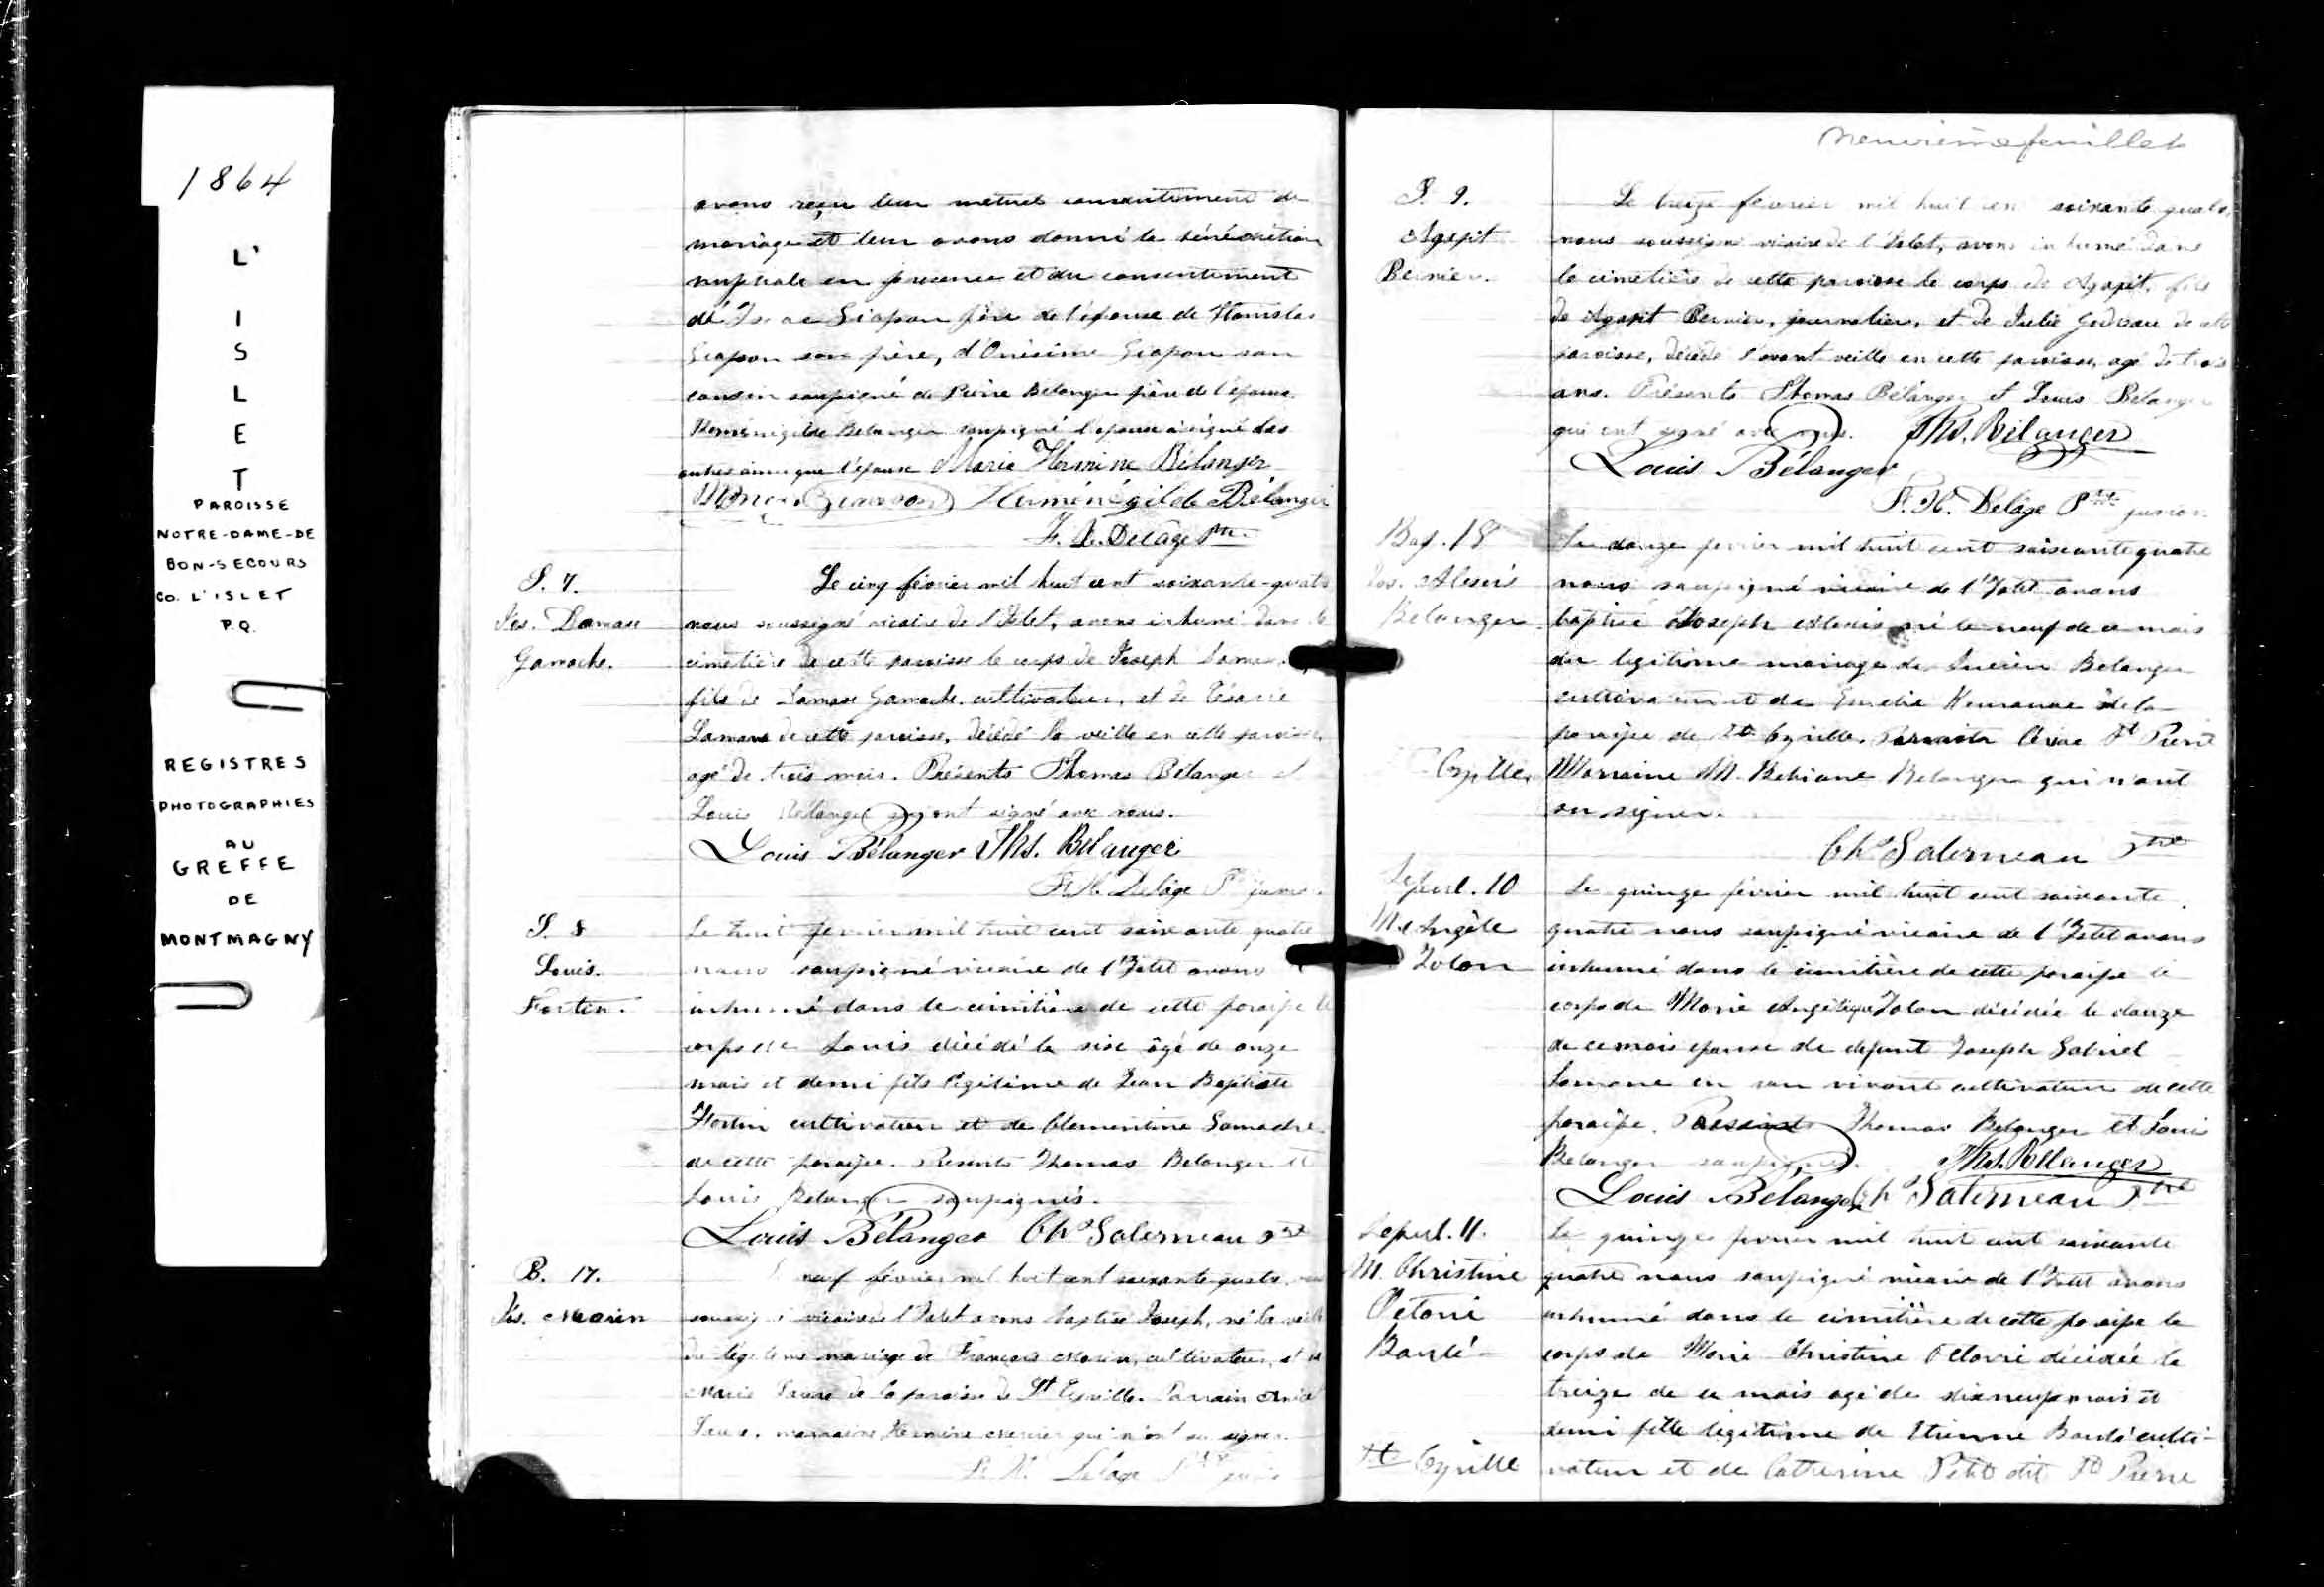 1864
L'
I
S
L
E
T
PAROISSE
NOTRE-DAME-DE
BON-SECOURS
CO. L'ISLET
P.Q.
REGISTRES
PHOTOGRAPHIES
AU
GREFFE
DE
MONTMAGNY
avons reçu leur mutuel consentement de
mariage et leur avons donné la bénédiction
nuptiale en presence et du consentement
de père de l'épouse de Stanislas
son frère, d'Onésime son
cousin soussigné de Pierre Belanger père de l'épouse
Herménégilde Belanger soussigné l'epoux a signé
ainsi que l'épouse Marie Hermine Bélanger
Herménégilde Bélanger
F. H. Delâge Ptre
S. 7.
Jos. Damase
Gamache.
Le cinq février mil huit cent soixante-quatre
nous soussigné vicaire de l'Islet, avons inhumé dans le
cimetière de cette paroisse le corps de Joseph
fils de Damase Gamache, cultivateur, et de Césarie
de cette paroisse, décédé la veille en cette paroisse,
agé de trois mois. Présents Thomas Bélanger et
Louis Bélanger qui ont signé avec nous.
Louis Bélanger Ths. Bélanger
F. H. Delâge Ptre
S. 8
Louis
Fortin.
Le huit fevrier mil huit cent soixante quatre
nous soussigné vicaire de l'Islet avons
inhumé dans le cimitière de cette paroisse le
corps de Louis décédé le six âgé de onze
mois et demi fils légitime de Jean Baptiste
Fortin cultivateur et de Clementine Gamache
de cette paroisse. Présents Thomas Belanger et
Louis Belanger soussignés.
Louis Bélanger Chs Galerneau Ptre
B. 17.
Jos. Morin
neuf février mil huit cent soixante quatre, nous
vicaire de l'Islet avons baptisé Joseph, né la veille
du légitime mariage de François Morin, cultivateur, et de
Marie de la paroisse de St Cyrille. Parrain
marraine Hermine Mercier qui n'ont su signer.
F. H. Delâge Ptre
Neuvième feuillet
S. 9.
Agapit
Bernier.
Le treize fevrier mil huit cent soixante quatre,
nous soussigné vicaire de l'Islet, avons inhumé dans
le cimetière de cette paroisse le corps de Agapit, fils
de Agapit Bernier, journalier, et de Julie Godreau de cette
paroisse, décédé l'avant veille en cette paroisse, agé de trois
ans. Présents Thomas Bélanger et Louis Bélanger
qui ont signé avec nous. Ths. Bélanger
Louis Bélanger
F. H. Delâge Ptre
Bap. 18
Jos. Alexis
Belanger
St Cyrille
Le douze fevrier mil huit cent soixante quatre
nous soussigné vicaire de l'Islet avons
baptisé Joseph Alexis né le neuf de ce mois
du legitime mariage de Belanger
cultivateur et de de la
paroisse de St Cyrille. Parrain St Pierre
Marraine M. Bibiane Belanger qui n'ont
su signer.
Chs Galerneau Ptre
Sepul. 10
M. Angèle
Le quinze février mil huit cent soixante
quatre nous soussigné vicaire de l'Islet avons
inhumé dans le cimitière de cette paroisse le
corps de Marie Angélique décédée le douze
de ce mois epouse de defunt Joseph Gabriel
en son vivant cultivateur de cette
paroisse. Présents Thomas Belanger et Louis
Belanger soussignés. Ths. Bélanger
Louis Bélanger Chs Galerneau Ptre
Sepul. 11.
M. Christine
St Cyrille
Le quinze fevrier mil huit cent soixante
quatre nous soussigné vicaire de l'Islet avons
inhumé dans le cimitière de cette paroisse le
corps de Marie Christine décédée le
treize de ce mois agé de dix neuf mois et
demi fille légitime de Etienne culti-
vateur et de Catherine Petit dit St Pierre